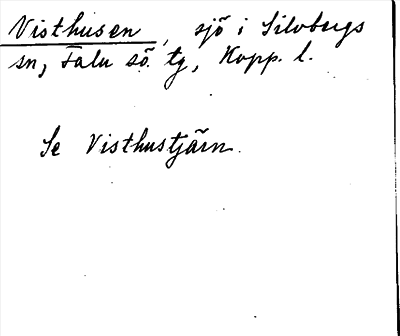 Visthusen, sjö i Silvbergs
sn, Falu sö. tg, Kopp. l.
Se Visthustjärn.